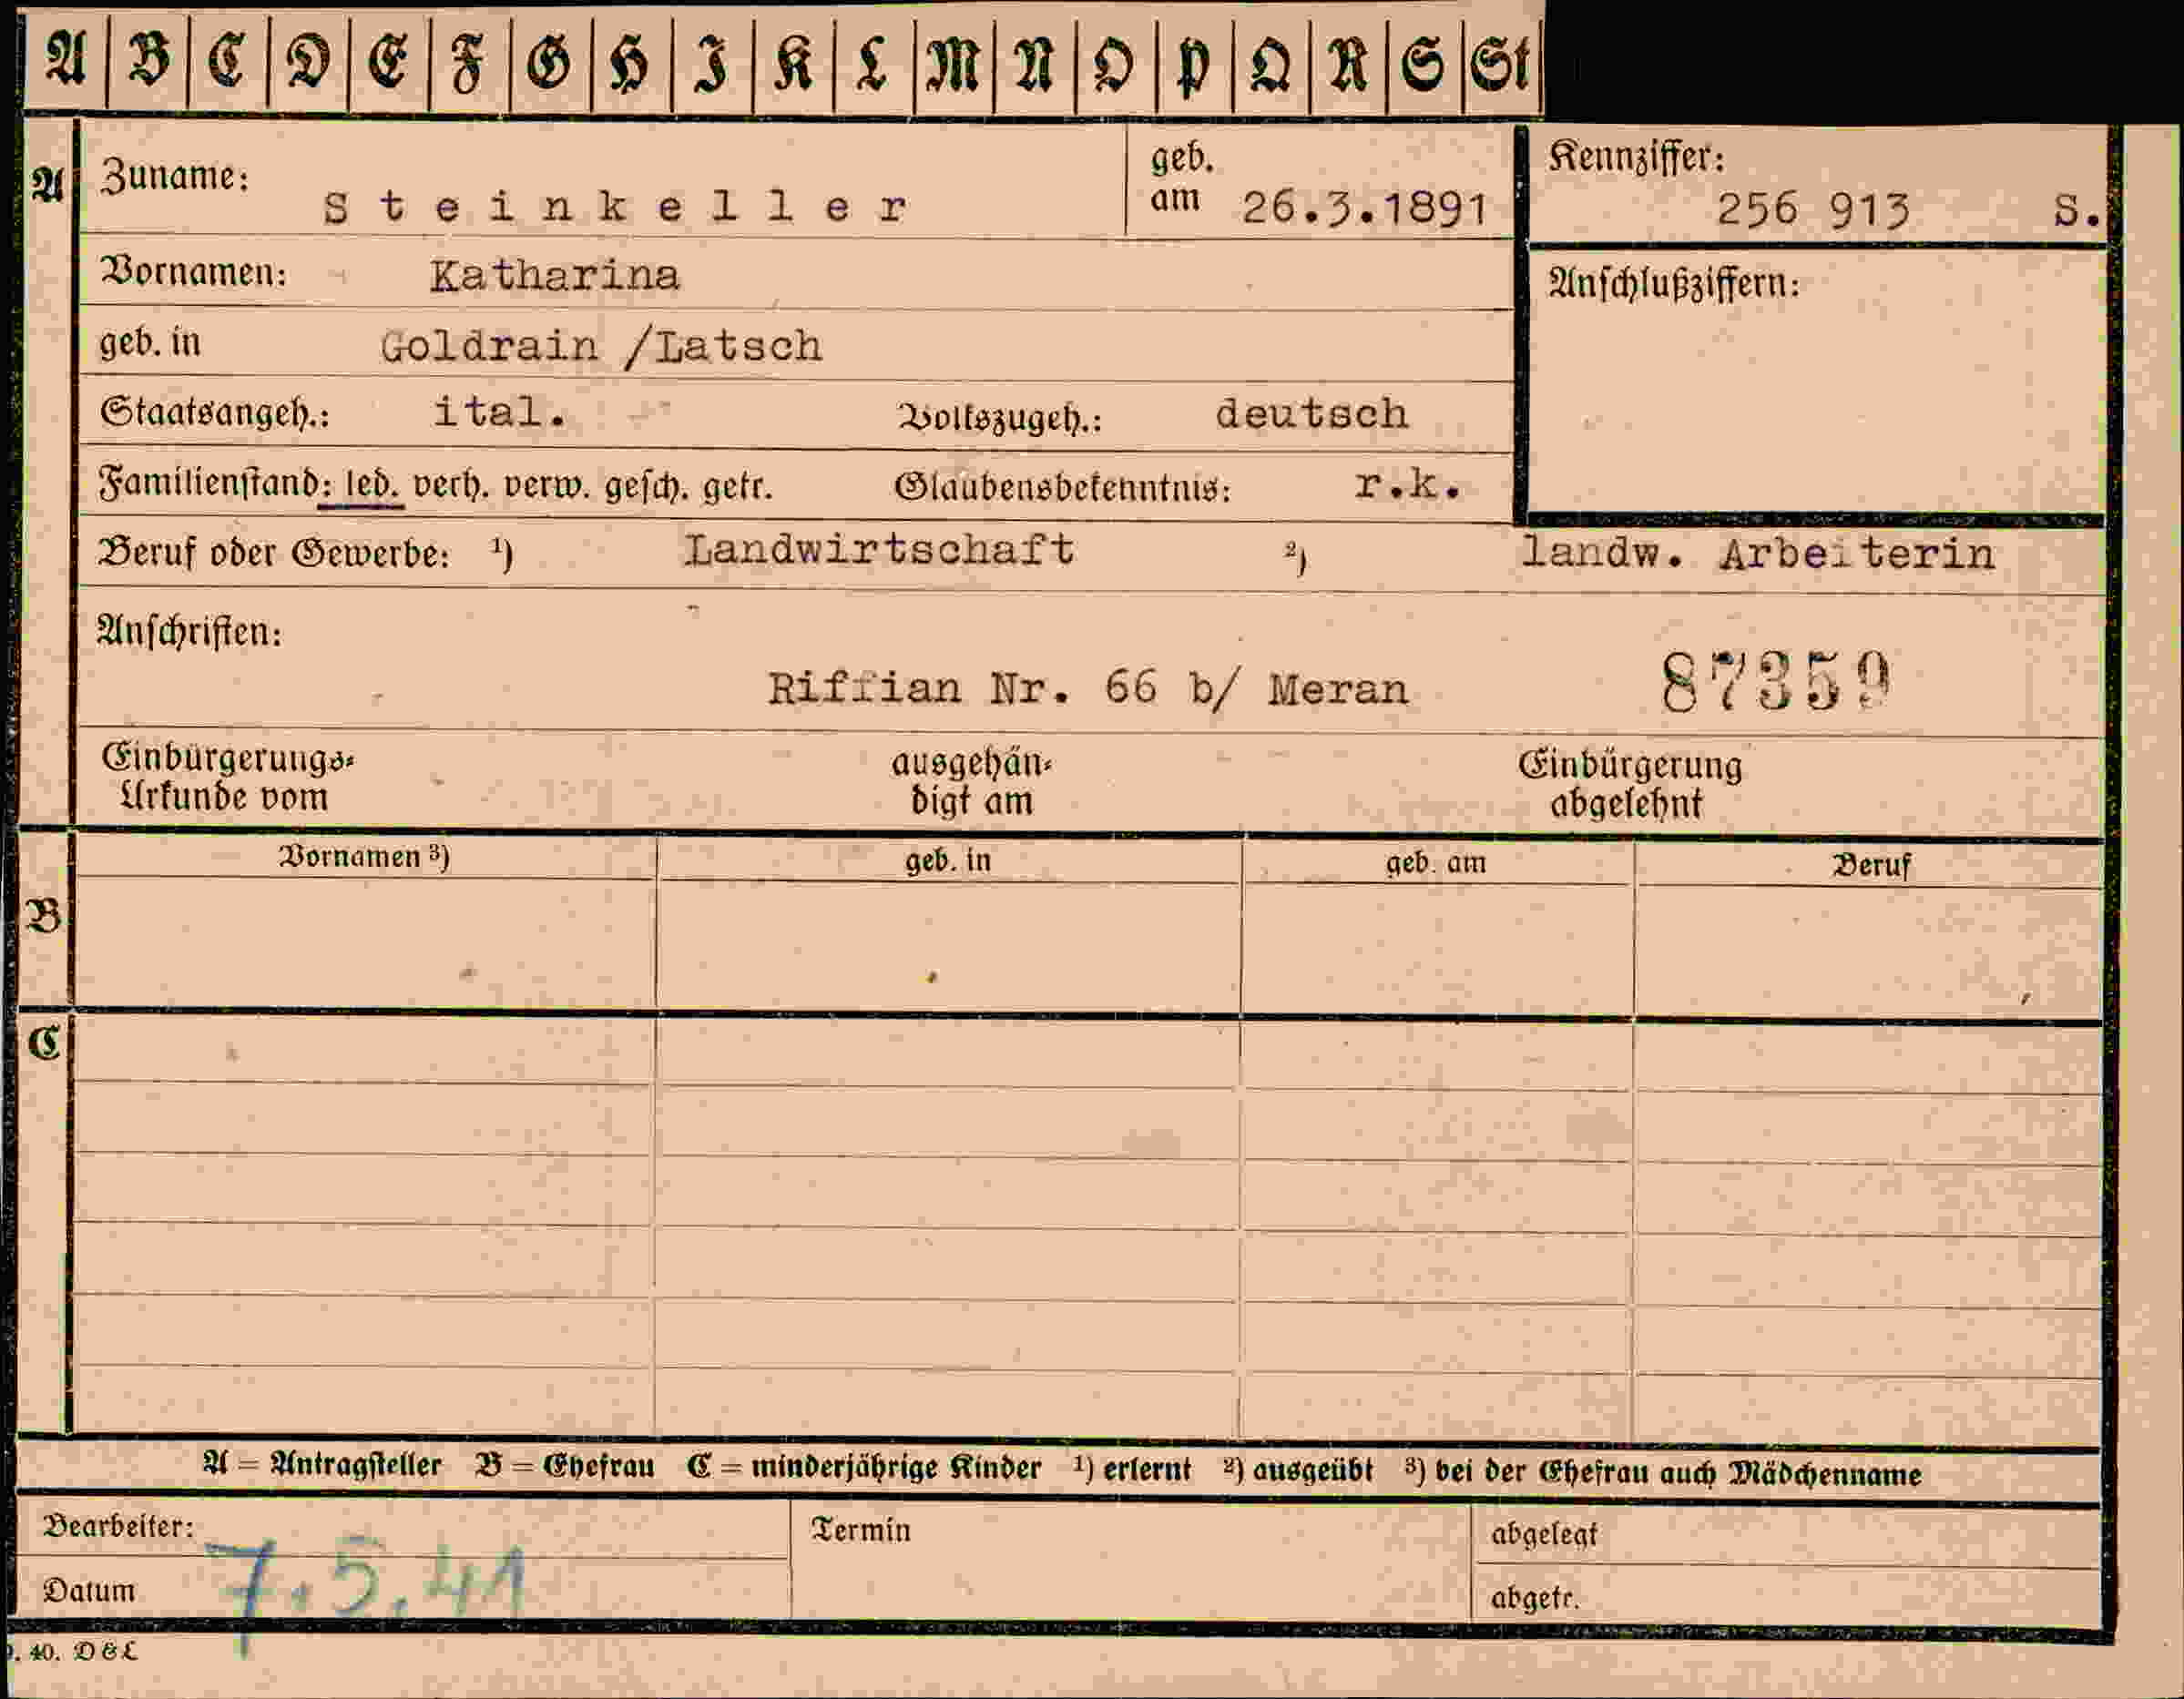 A B C D E F G H I K L M N O P Q R S St
A Zuname: Steinkeller geb. am 26.3.1891 Kennziffer: 256 913 S.
Vornamen: Katharina Anschlußziffern:
geb. in Goldrain /Latsch
Staatsangeh.: ital. Volkszugeh.: deutsch
Familienstand: led. verh. verw. gesch. getr. Glaubensbekenntnis: r.k.
Beruf oder Gewerbe: ¹) Landwirtschaft ²) landw. Arbeiterin
Anschriften:
Riffian Nr. 66 b/ Meran 87359
Einbürgerungs- ausgehän- Einbürgerung
Urkunde vom digt am abgelehnt
Vornamen ³) geb. in geb. am Beruf
B
C
A = Antragsteller B = Ehefrau C = minderjährige Kinder ¹) erlernt ²) ausgeübt ³) bei der Ehefrau auch Mädchenname
Bearbeiter: Termin abgelegt
Datum 7.5.41 abgetr.
. 40. D & L